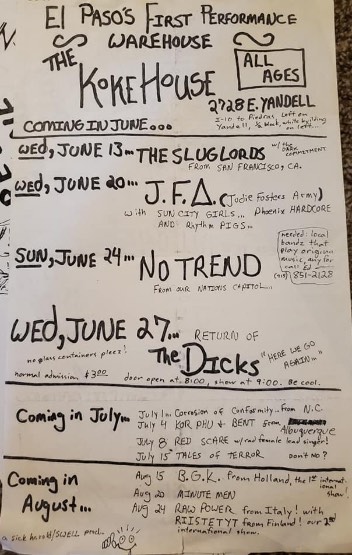 EL PASO'S FIRST PERFORMANCE
WAREHOUSE
THE KOKEHOUSE
ALL AGES
2728 E. YANDELL
I-10 to Piedras, left on
Yandell, ½ block, white building
on left...
COMING IN JUNE...
WED, JUNE 13... THE SLUGLORDS w/ the
FROM SAN FRANCISCO, CA.
WED, JUNE 20... J.F.A. (Jodie Fosters Army)
with SUN CITY GIRLS... Phoenix HARDCORE
AND Rhythm PIGS...
needed: local
bands that
play original
music, any for
call Ed
(915) 851-2128
SUN, JUNE 24... NO TREND
FROM OUR NATIONS CAPITOL...
WED, JUNE 27... RETURN OF
The DICKS "HERE WE GO
AGAIN..."
no glass containers pleez!
normal admission $3.00 door open at 8:00, show at 9:00. Be cool.
Coming in July...
July 1... Corrosion of Conformity... from N.C.
July 4 KOR PHU & BENT from Albuquerque
July 8 RED SCARE w/rad female lead singer!
July 15 TALES OF TERROR don't no?
Coming in August...
Aug 15 B.G.K. from Holland, the 1st internat-
ional show!
Aug 20 MINUTE MEN
Aug 24 RAW POWER from Italy! with
RIISTETYT from Finland! our 2nd
international show.
a sick